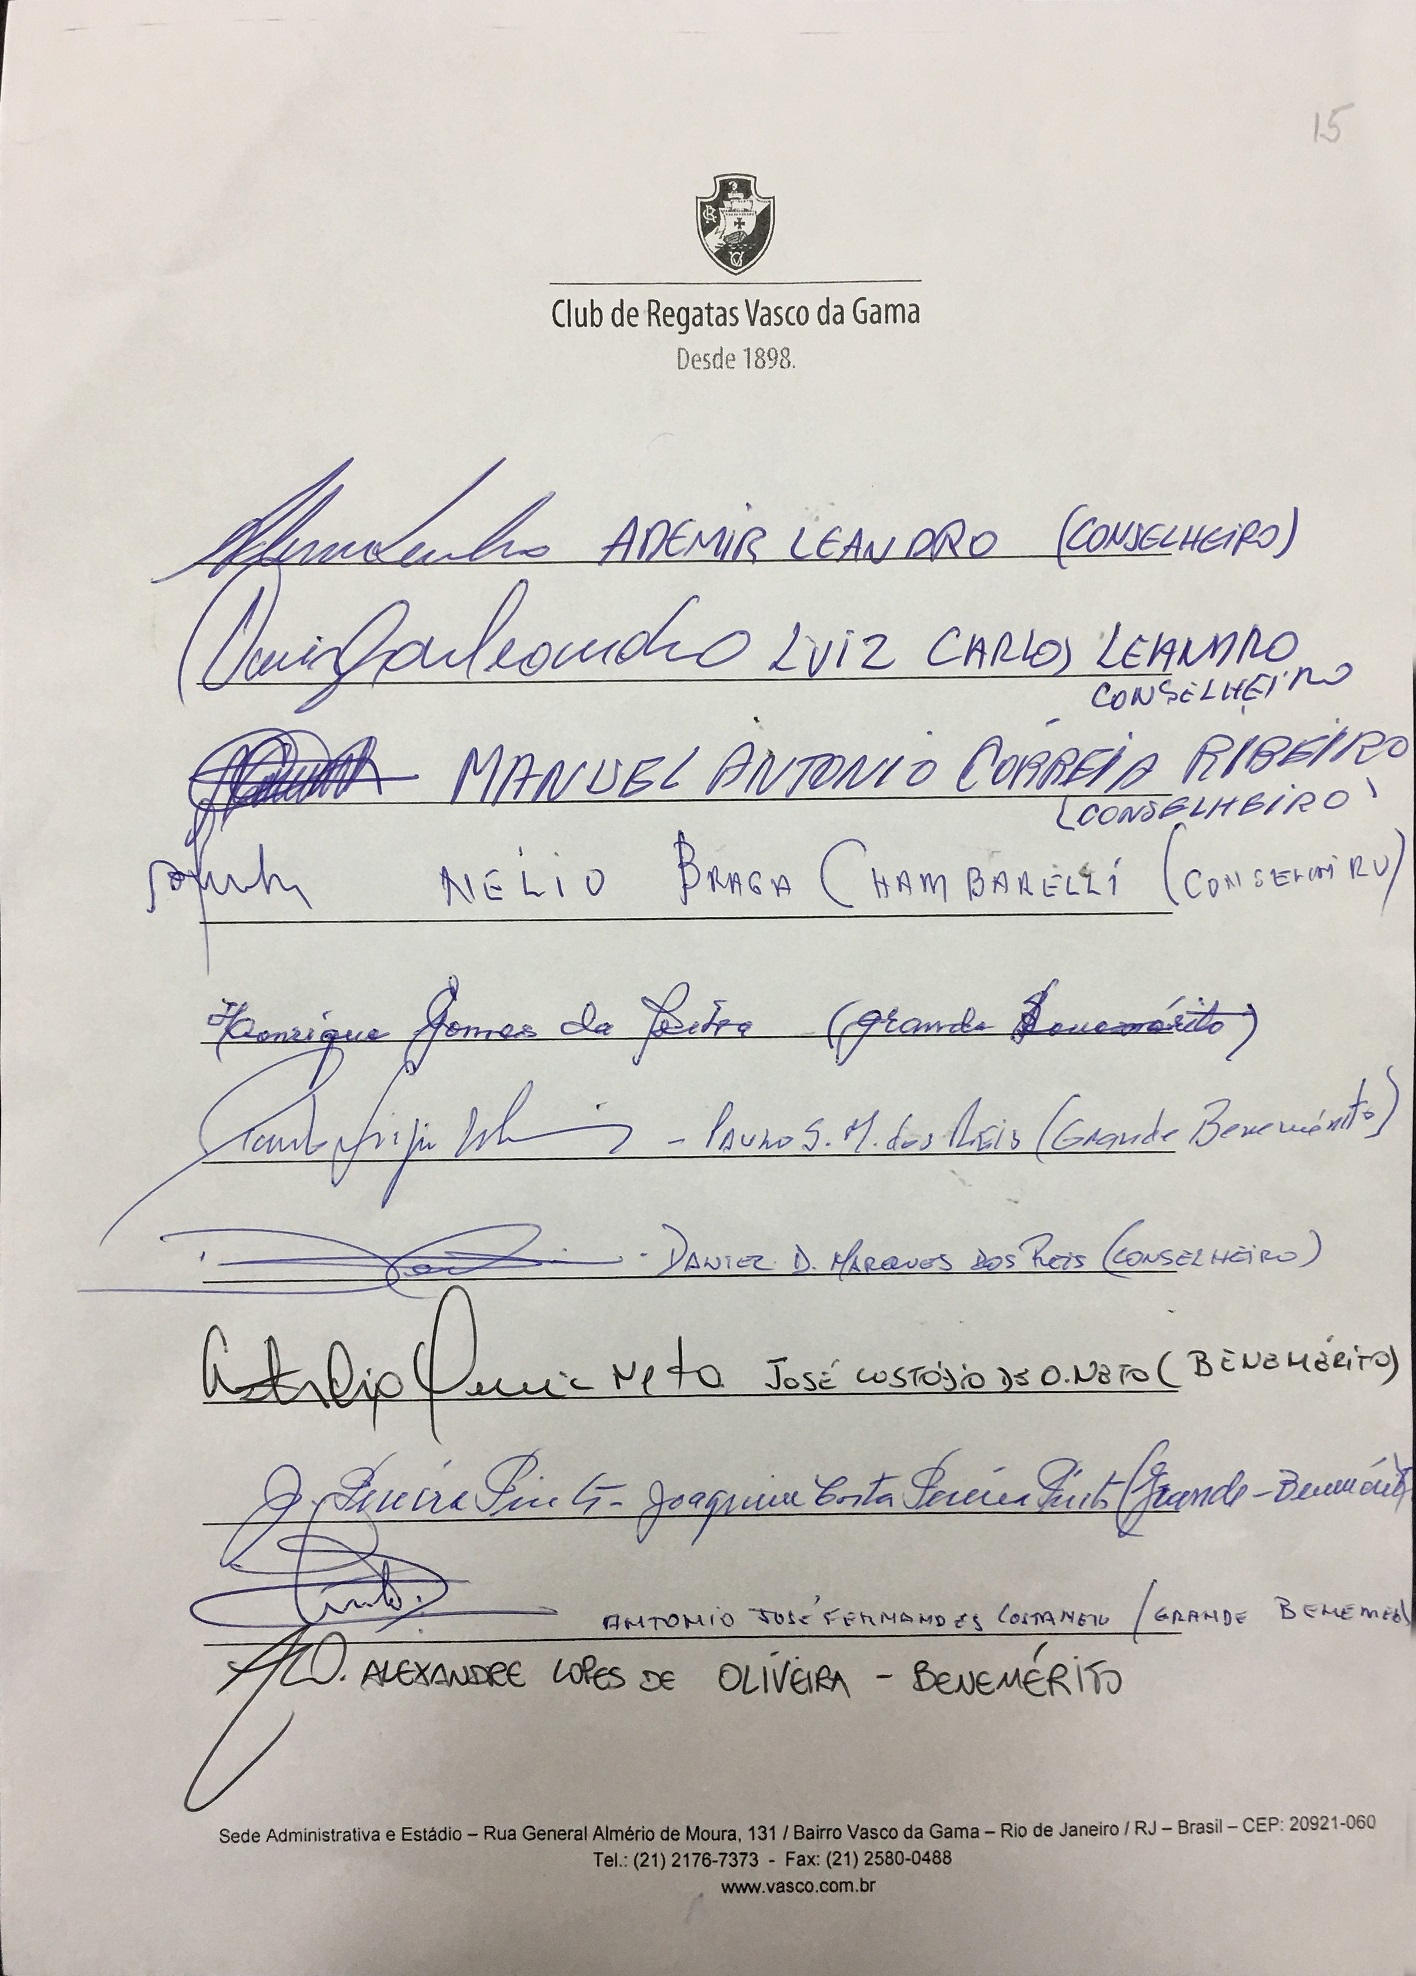 15
Club de Regatas Vasco da Gama
Desde 1898.
ADEMIR LEANDRO (CONSELHEIRO)
LUIZ CARLOS LEANDRO
CONSELHEIRO
MANUEL ANTONIO CORREIA RIBEIRO
(CONSELHEIRO)
NÉLIO BRAGA CHAMBARELLI (CONSELHEIRO)
Henrique Gomes da (grande Benemérito)
- PAULO S. M. dos REIS (Grande Benemérito)
- DANIEL D. MARQUES DOS REIS (CONSELHEIRO)
Neto JOSÉ CUSTÓDIO DE O. NETO (BENEMÉRITO)
J. Pereira Pinto - Joaquim Costa Pereira Pinto (Grande - Benemérit
ANTONIO JOSÉ FERNANDES COSTA NETO / GRANDE BENEMER
ALEXANDRE LOPES DE OLIVEIRA - BENEMÉRITO
Sede Administrativa e Estádio – Rua General Almério de Moura, 131 / Bairro Vasco da Gama – Rio de Janeiro / RJ – Brasil – CEP: 20921-060
Tel.: (21) 2176-7373 - Fax: (21) 2580-0488
www.vasco.com.br